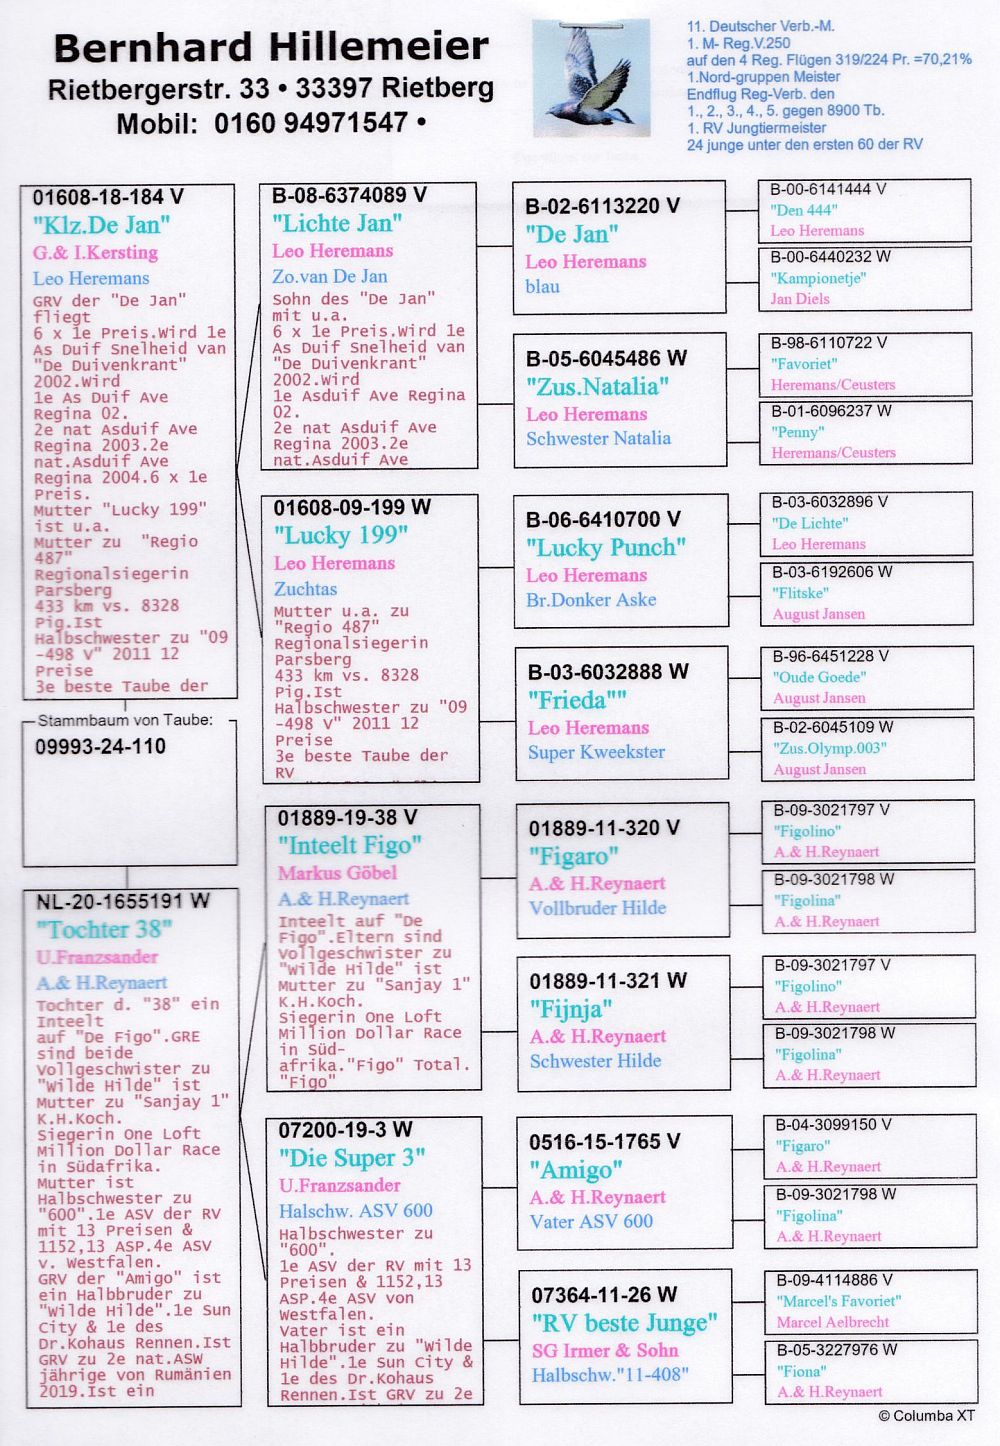 Bernhard Hillemeier
Rietbergerstr. 33 • 33397 Rietberg
Mobil: 0160 94971547 •
11. Deutscher Verb.-M.
1. M- Reg.V.250
auf den 4 Reg. Flügen 319/224 Pr. =70,21%
1.Nord-gruppen Meister
Endflug Reg-Verb. den
1., 2., 3., 4., 5. gegen 8900 Tb.
1. RV Jungtiermeister
24 junge unter den ersten 60 der RV
01608-18-184 V
"Klz.De Jan"
G.& I.Kersting
Leo Heremans
GRV der "De Jan"
fliegt
6 x 1e Preis.Wird 1e
As Duif Snelheid van
"De Duivenkrant"
2002.Wird
1e As Duif Ave
Regina 02.
2e nat Asduif Ave
Regina 2003.2e
nat.Asduif Ave
Regina 2004.6 x 1e
Preis.
Mutter "Lucky 199"
ist u.a.
Mutter zu "Regio
487"
Regionalsiegerin
Parsberg
433 km vs. 8328
Pig.Ist
Halbschwester zu "09
-498 V" 2011 12
Preise
3e beste Taube der
Stammbaum von Taube:
09993-24-110
NL-20-1655191 W
"Tochter 38"
U.Franzsander
A.& H.Reynaert
Tochter d. "38" ein
Inteelt
auf "De Figo".GRE
sind beide
Vollgeschwister zu
"Wilde Hilde" ist
Mutter zu "Sanjay 1"
K.H.Koch.
Siegerin One Loft
Million Dollar Race
in Südafrika.
Mutter ist
Halbschwester zu
"600".1e ASV der RV
mit 13 Preisen &
1152,13 ASP.4e ASV
v. Westfalen.
GRV der "Amigo" ist
ein Halbbruder zu
"Wilde Hilde".1e Sun
City & 1e des
Dr.Kohaus Rennen.Ist
GRV zu 2e nat.ASW
jährige von Rumänien
2019.Ist ein
B-08-6374089 V
"Lichte Jan"
Leo Heremans
Zo.van De Jan
Sohn des "De Jan"
mit u.a.
6 x 1e Preis.Wird 1e
As Duif Snelheid van
"De Duivenkrant"
2002.Wird
1e Asduif Ave Regina
02.
2e nat Asduif Ave
Regina 2003.2e
nat.Asduif Ave
01608-09-199 W
"Lucky 199"
Leo Heremans
Zuchtas
Mutter u.a. zu
"Regio 487"
Regionalsiegerin
Parsberg
433 km vs. 8328
Pig.Ist
Halbschwester zu "09
-498 V" 2011 12
Preise
3e beste Taube der
RV
01889-19-38 V
"Inteelt Figo"
Markus Göbel
A.& H.Reynaert
Inteelt auf "De
Figo".Eltern sind
Vollgeschwister zu
"Wilde Hilde" ist
Mutter zu "Sanjay 1"
K.H.Koch.
Siegerin One Loft
Million Dollar Race
in Süd-
afrika."Figo" Total.
"Figo"
07200-19-3 W
"Die Super 3"
U.Franzsander
Halschw. ASV 600
Halbschwester zu
"600".
1e ASV der RV mit 13
Preisen & 1152,13
ASP.4e ASV von
Westfalen.
Vater ist ein
Halbbruder zu "Wilde
Hilde".1e Sun City &
1e des Dr.Kohaus
Rennen.Ist GRV zu 2e
B-02-6113220 V
"De Jan"
Leo Heremans
blau
B-05-6045486 W
"Zus.Natalia"
Leo Heremans
Schwester Natalia
B-06-6410700 V
"Lucky Punch"
Leo Heremans
Br.Donker Aske
B-03-6032888 W
"Frieda""
Leo Heremans
Super Kweekster
01889-11-320 V
"Figaro"
A.& H.Reynaert
Vollbruder Hilde
01889-11-321 W
"Fijnja"
A.& H.Reynaert
Schwester Hilde
0516-15-1765 V
"Amigo"
A.& H.Reynaert
Vater ASV 600
07364-11-26 W
"RV beste Junge"
SG Irmer & Sohn
Halbschw."11-408"
B-00-6141444 V
"Den 444"
Leo Heremans
B-00-6440232 W
"Kampionetje"
Jan Diels
B-98-6110722 V
"Favoriet"
Heremans/Ceusters
B-01-6096237 W
"Penny"
Heremans/Ceusters
B-03-6032896 V
"De Lichte"
Leo Heremans
B-03-6192606 W
"Flitske"
August Jansen
B-96-6451228 V
"Oude Goede"
August Jansen
B-02-6045109 W
"Zus.Olymp.003"
August Jansen
B-09-3021797 V
"Figolino"
A.& H.Reynaert
B-09-3021798 W
"Figolina"
A.& H.Reynaert
B-09-3021797 V
"Figolino"
A.& H.Reynaert
B-09-3021798 W
"Figolina"
A.& H.Reynaert
B-04-3099150 V
"Figaro"
A.& H.Reynaert
B-09-3021798 W
"Figolina"
A.& H.Reynaert
B-09-4114886 V
"Marcel's Favoriet"
Marcel Aelbrecht
B-05-3227976 W
"Fiona"
A.& H.Reynaert
© Columba XT